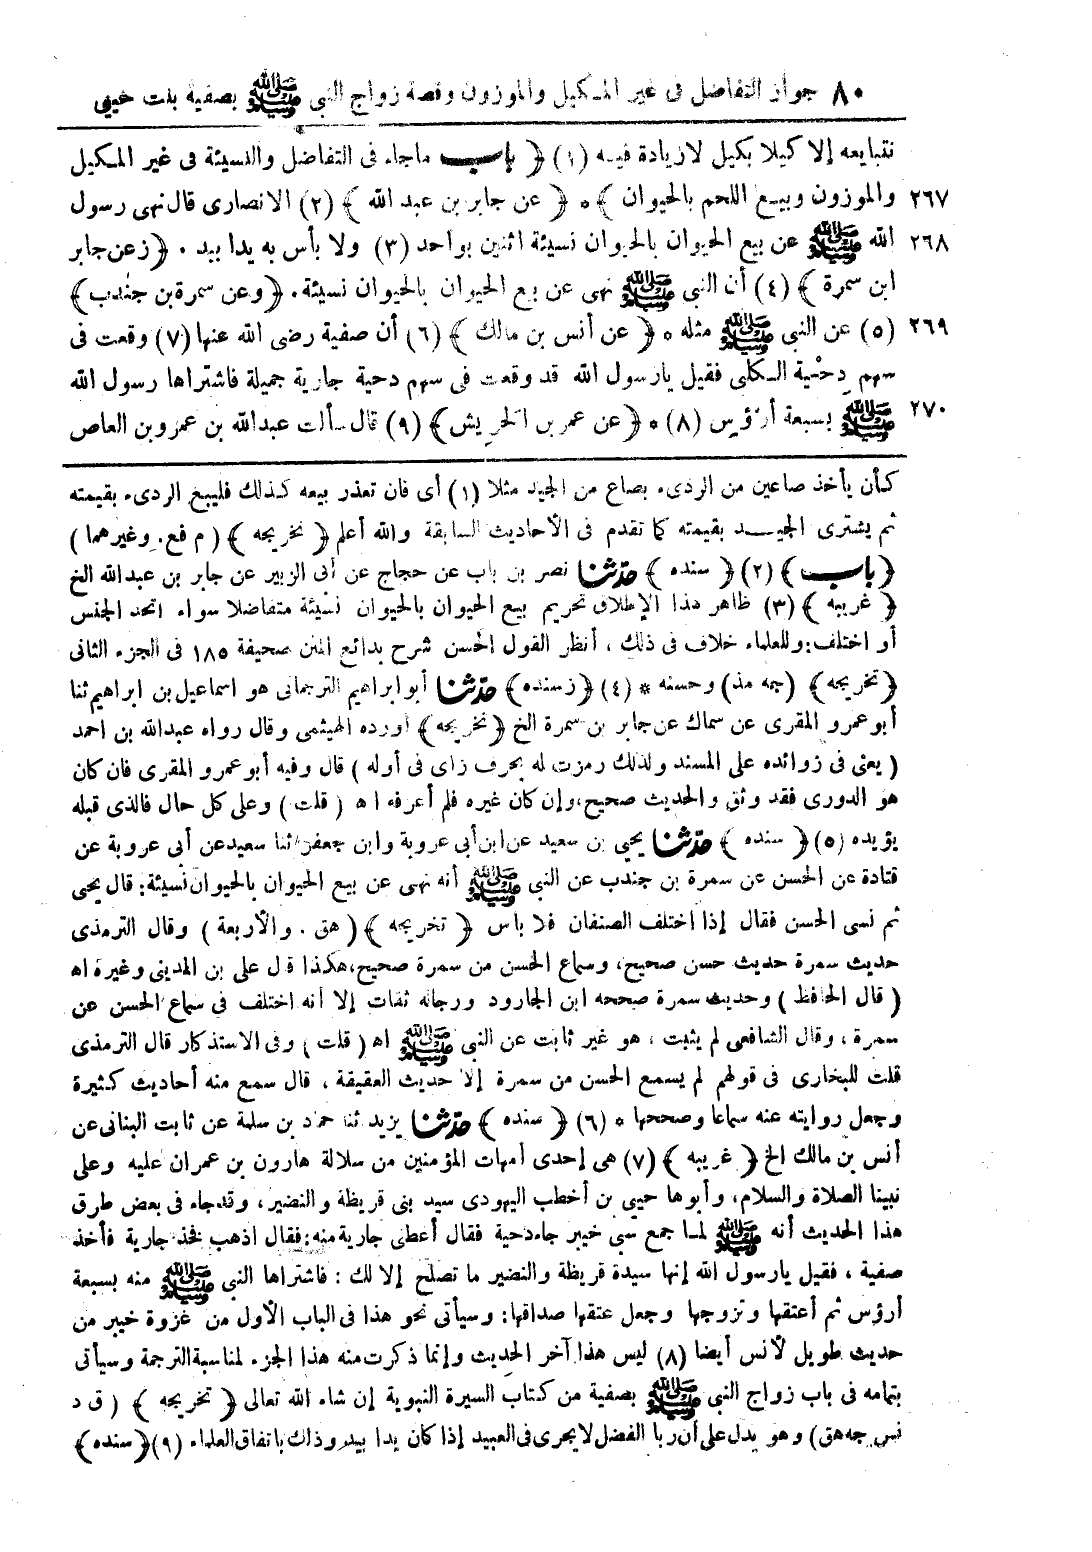 ٨٠ جواز التفاضل فى غير المكيل والموزون وقصة زواج النبى ﷺ بصفية بنت حيي
نتبايعه إلا كيلا بكيل لازيادة فيه (١) ﴿ باب ماجاء فى التفاضل والنسيئة فى غير المكيل
٢٦٧ والموزون وبيع اللحم بالحيوان ﴾ * ﴿ عن جابر بن عبد الله ﴾ (٢) الانصارى قال نهى رسول
٢٦٨ الله ﷺ عن بيع الحيوان بالحيوان نسيئة اثنين بواحد (٣) ولا بأس به يدا بيد . ﴿ زعن جابر
ابن سمرة ﴾ (٤) أن النبى ﷺ نهى عن بيع الحيوان بالحيوان نسيئة . ﴿ وعن سمرة بن جندب ﴾
٢٦٩ (٥) عن النبى ﷺ مثله * ﴿ عن أنس بن مالك ﴾ (٦) أن صفية رضى الله عنها (٧) وقعت فى
سهم دِحْية الكلبى فقيل يارسول الله قد وقعت فى سهم دحية جارية جميلة فاشتراها رسول الله
٢٧٠ ﷺ بسبعة أرؤس (٨) * ﴿ عن عمر بن الحريش ﴾ (٩) قال سألت عبدالله بن عمرو بن العاص
كأن يأخذ صاعين من الردىء بصاع من الجيد مثلا (١) أى فان تعذر بيعه كذلك فليبع الردىء بقيمته
ثم يشترى الجيد بقيمته كما تقدم فى الأحاديث السابقة والله أعلم ﴿ تخريجه ﴾ ( م فع . وغيرهما )
﴿ باب ﴾ (٢) ﴿ سنده ﴾ حدثنا نصر بن باب عن حجاج عن أبى الزبير عن جابر بن عبدالله الخ
﴿ غريبه ﴾ (٣) ظاهر هذا الإطلاق تحريم بيع الحيوان بالحيوان نسيئة متفاضلا سواء اتحد الجنس
أو اختلف : وللعلماء خلاف فى ذلك ، أنظر القول الحسن شرح بدائع المنن صحيفة ١٨٥ فى الجزء الثانى
﴿ تخريجه ﴾ (جه مذ) وحسنه * (٤) ﴿ زسنده ﴾ حدثنا أبو ابراهيم الترجمانى هو اسماعيل بن ابراهيم ثنا
أبو عمرو المقرى عن سماك عن جابر بن سمرة الخ ﴿ تخريجه ﴾ أورده الهيثمى وقال رواه عبدالله بن احمد
( يعنى فى زوائده على المسند ولذلك رمزت له بحرف زاى فى أوله ) قال وفيه أبو عمرو المقرى فان كان
هو الدورى فقد وثق والحديث صحيح ، وإن كان غيره فلم أعرفه اه ( قلت ) وعلى كل حال فالذى قبله
يؤيده (٥) ﴿ سنده ﴾ حدثنا يحيى بن سعيد عن ابن أبى عروبة وابن جعفر ثنا سعيد عن أبى عروبة عن
قتادة عن الحسن عن سمرة بن جندب عن النبى ﷺ أنه نهى عن بيع الحيوان بالحيوان نسيئة : قال يحيى
ثم نسى الحسن فقال إذا اختلف الصنفان فلا باس ﴿ تخريجه ﴾ ( هق . والأربعة ) وقال الترمذى
حديث سمرة حديث حسن صحيح ، وسماع الحسن من سمرة صحيح ، هكذا قال على بن المدينى وغيره اه
( قال الحافظ ) وحديث سمرة صححه ابن الجارود ورجاله ثقات إلا أنه اختلف فى سماع الحسن عن
سمرة ، وقال الشافعى لم يثبت ، هو غير ثابت عن النبى ﷺ اه ( قلت ) وفى الاستذكار قال الترمذى
قلت للبخارى فى قولهم لم يسمع الحسن من سمرة إلا حديث العقيقة ، قال سمع منه أحاديث كثيرة
وجعل روايته عنه سماعا وصححها * (٦) ﴿ سنده ﴾ حدثنا يزيد ثنا حماد بن سلمة عن ثابت البنانى عن
أنس بن مالك الخ ﴿ غريبه ﴾ (٧) هى إحدى أمهات المؤمنين من سلالة هارون بن عمران عليه وعلى
نبينا الصلاة والسلام ، وأبوها حيي بن أخطب اليهودى سيد بنى قريظة والنضير ، وقد جاء فى بعض طرق
هذا الحديث أنه ﷺ لما جمع سبى خيبر جاء دحية فقال أعطى جارية منه : فقال اذهب فخذ جارية فأخذ
صفية ، فقيل يارسول الله إنها سيدة قريظة والنضير ما تصلح إلا لك : فاشتراها النبى ﷺ منه بسبعة
أرؤس ثم أعتقها وتزوجها وجعل عتقها صداقها : وسيأتى نحو هذا فى الباب الأول من غزوة خيبر من
حديث طويل لأنس أيضا (٨) ليس هذا آخر الحديث وإنما ذكرت منه هذا الجزء لمناسبة الترجمة وسيأتى
بتمامه فى باب زواج النبى ﷺ بصفية من كتاب السيرة النبوية إن شاء الله تعالى ﴿ تخريجه ﴾ ( ق د
نس جه هق ) وهو يدل على أن ربا الفضل لايجرى فى العبيد إذا كان يدا بيد وذلك باتفاق العلماء (٩) ﴿ سنده ﴾